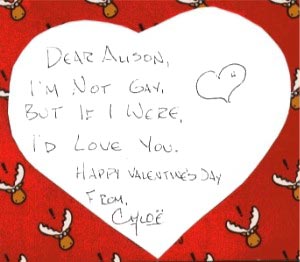 DEAR ALISON,
I'M NOT GAY,
BUT IF I WERE,
I'D LOVE YOU.
HAPPY VALENTINE'S DAY
FROM,
CHLOË